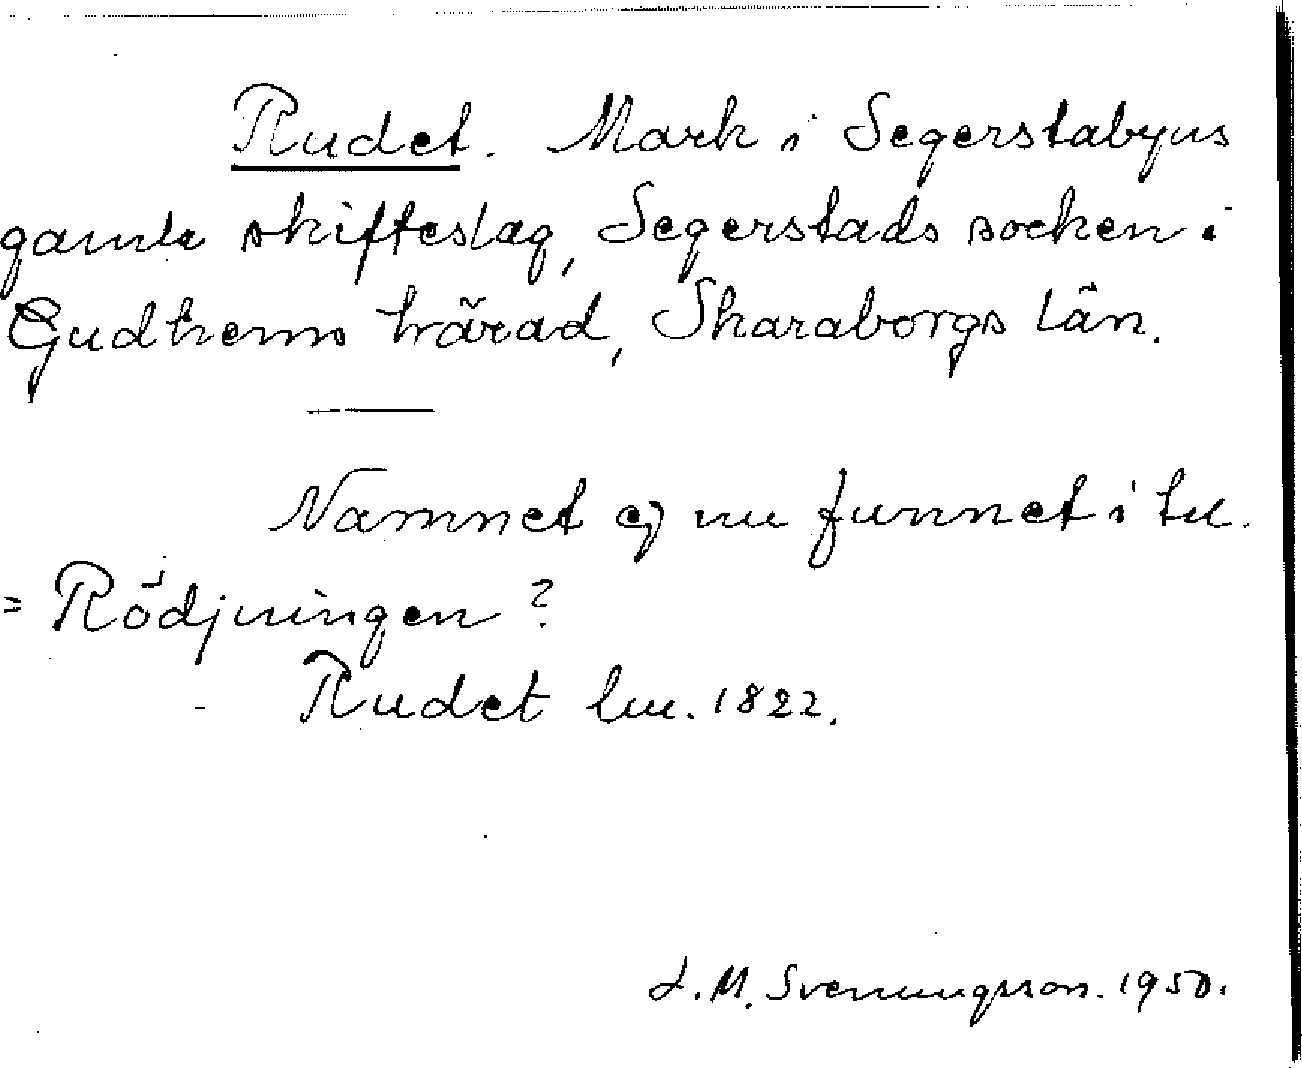 Rudet. Mark i Segerstabyns
gamla skifteslag, Segerstads socken i
Gudhems härad, Skaraborgs län.
Namnet ej nu funnet i bu.
= Rödjningen?
Rudet lm. 1822.
L. M. Svenungsson. 1950.